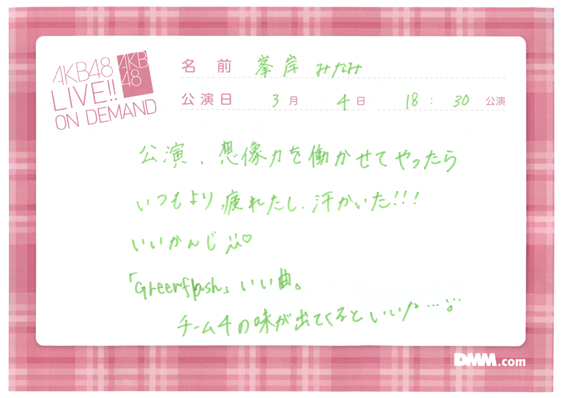 AKB48
LIVE!!
ON DEMAND
AKB
48
名前 峯岸 みなみ
公演日 3月 4日 18:30 公演
公演、想像力を働かせてやったら
いつもより疲れたし、汗かいた!!!
いいかんじ♡
「Greenflash」いい曲。
チーム4の味が出てくるといいな…
DMM.com